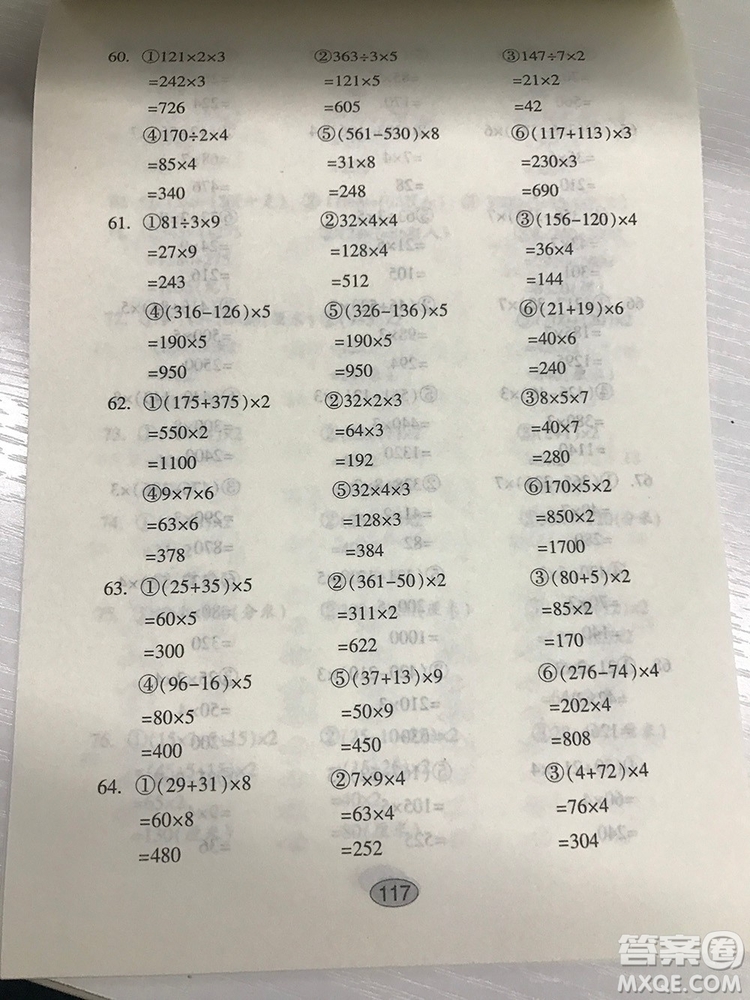 60. ①121×2×3 ②363÷3×5 ③147÷7×2
=242×3 =121×5 =21×2
=726 =605 =42
④170÷2×4 ⑤(561-530)×8 ⑥(117+113)×3
=85×4 =31×8 =230×3
=340 =248 =690
61. ①81÷3×9 ②32×4×4 ③(156-120)×4
=27×9 =128×4 =36×4
=243 =512 =144
④(316-126)×5 ⑤(326-136)×5 ⑥(21+19)×6
=190×5 =190×5 =40×6
=950 =950 =240
62. ①(175+375)×2 ②32×2×3 ③8×5×7
=550×2 =64×3 =40×7
=1100 =192 =280
④9×7×6 ⑤32×4×3 ⑥170×5×2
=63×6 =128×3 =850×2
=378 =384 =1700
63. ①(25+35)×5 ②(361-50)×2 ③(80+5)×2
=60×5 =311×2 =85×2
=300 =622 =170
④(96-16)×5 ⑤(37+13)×9 ⑥(276-74)×4
=80×5 =50×9 =202×4
=400 =450 =808
64. ①(29+31)×8 ②7×9×4 ③(4+72)×4
=60×8 =63×4 =76×4
=480 =252 =304
117
答案圈
MXQE.COM